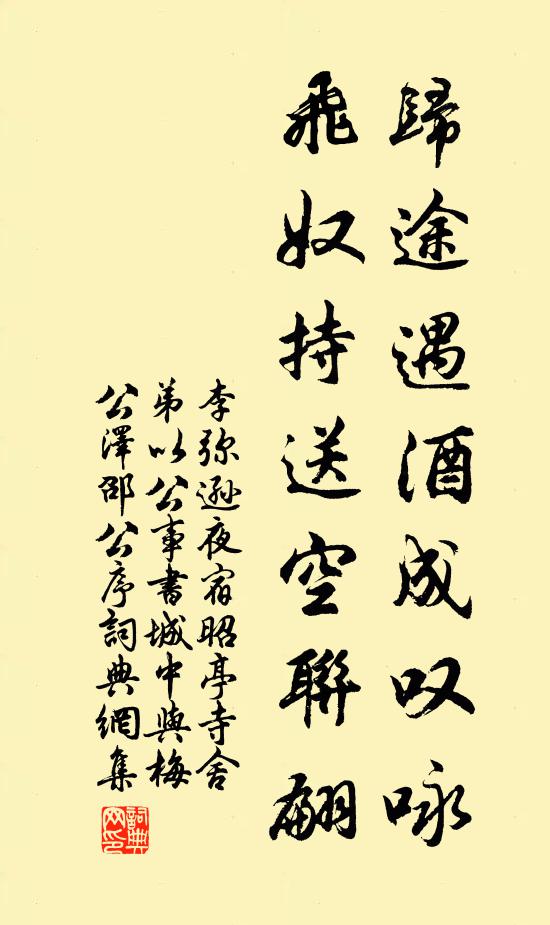 歸途遇酒成叹咏
飛奴持送空聯翩
李弥遜夜宿昭亭寺舍
弟以公事書城中與梅
公澤邵公序詞典網集
詞典网印